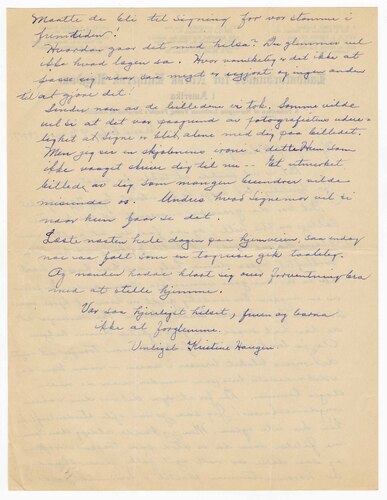 Maatte de bli til signing for vor stamme i
fremtiden!
Hvordan gaar det med helsa? Du glemmer vel
ikke hvad lægen sa. Hvor vanskelig det ikke at
passe sig naar saa meget er ugjort og ingen anden
til at gjøre det!
Sender now av de billeder vi tok. Somme vilde
vel si at det var paagrund av fotografistens
at Signe er blit alene med dig paa billedet.
Men jeg ser en skjæbnens ironi i dette. Hun som
ikke vaaget skrive dig til nu -- Et utmerket
billede av dig som mangen beundrer vilde
misunde os. Undres hvad Signe mor vil si
naar hun faar se det.
Læste næsten hele dagen paa hjemveien, saa endag
noe saa fælt som en togreise gik taalelig.
Og manden hadde klart sig over forventning bra
med at stelle hjemme.
Vær saa hjerteligst hilset, fruen og barna
ikke at forglemme.
Venligst Kristine Haugen.